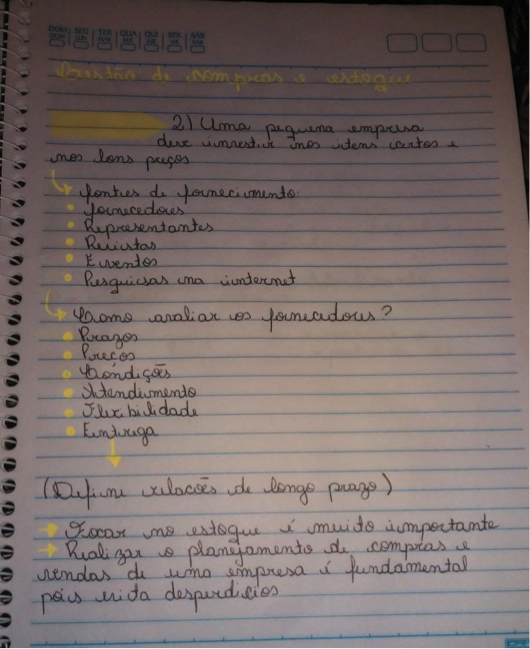 DOM SEG TER QUA QUI SEX SÁB
Gestão de compras e estoque
2) Uma pequena empresa
deve investir nos itens certos e
nos bons preços
fontes de fornecimento:
fornecedores
Representantes
Revistas
Eventos
Pesquisas na internet
Como avaliar os fornecedores?
Prazos
Preços
Condições
Atendimento
Flexibilidade
Entrega
(Define relações de longo prazo)
Focar no estoque é muito importante
Realizar o planejamento de compras e
vendas de uma empresa é fundamental
pois evita desperdícios